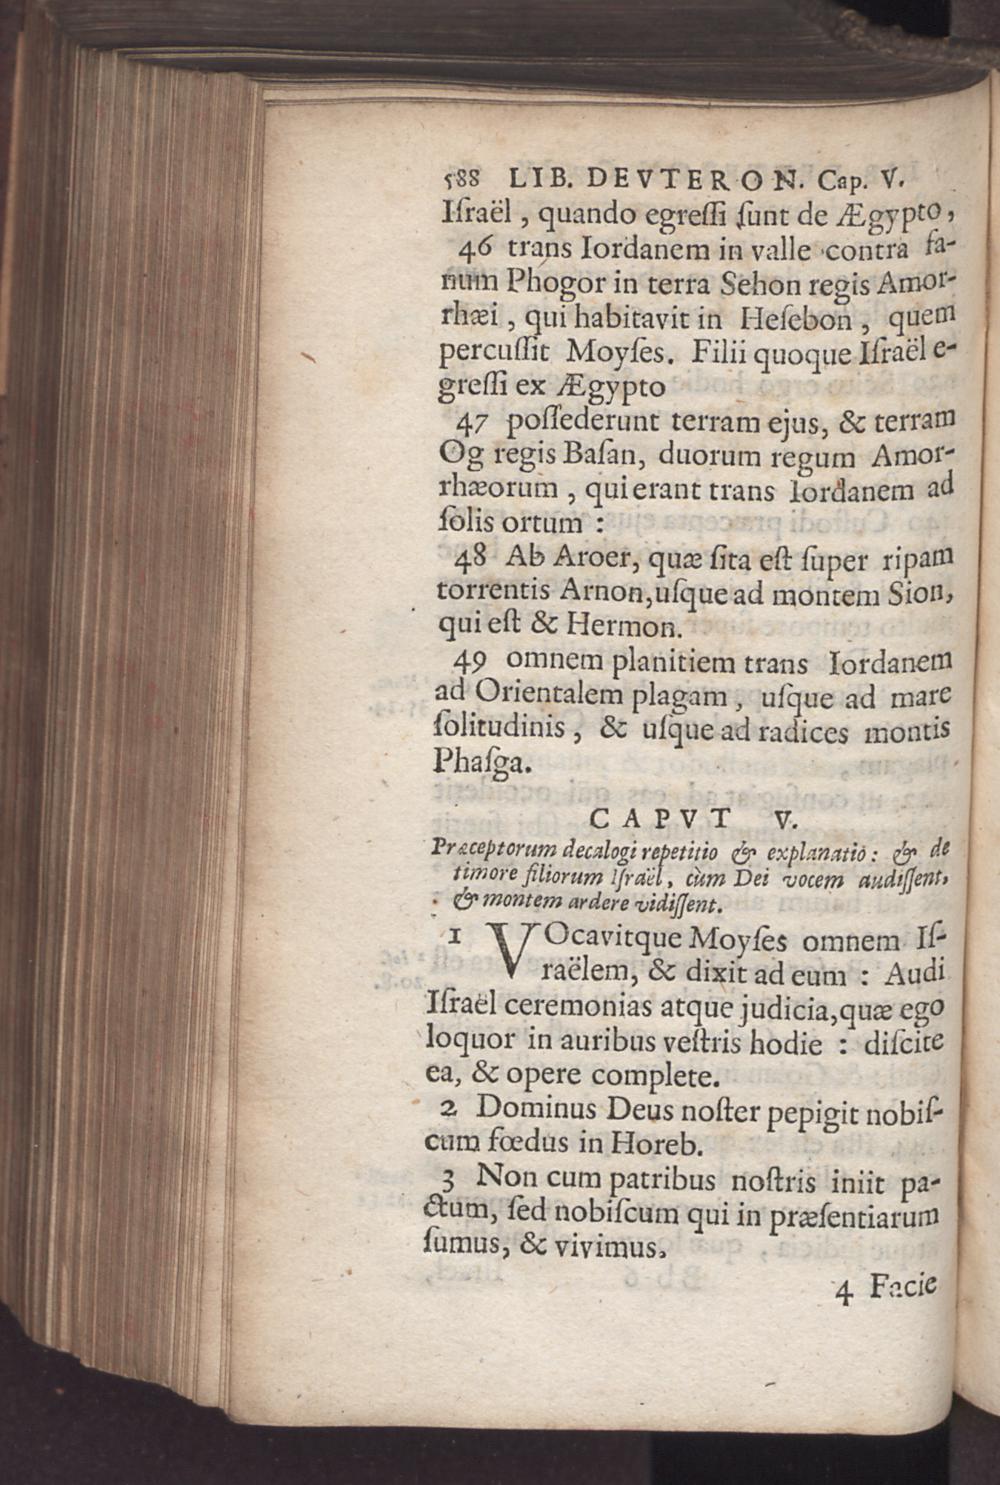 588 LIB. DEVTERON. Cap. V.
Iſraël , quando egreſſi ſunt de Ægypto ,
46 trans Iordanem in valle contra fa-
num Phogor in terra Sehon regis Amor-
rhæi , qui habitavit in Heſebon , quem
percuſſit Moyſes. Filii quoque Iſraël e-
greſſi ex Ægypto
47 poſſederunt terram ejus, & terram
Og regis Baſan, duorum regum Amor-
rhæorum , qui erant trans Iordanem ad
ſolis ortum :
48 Ab Aroer, quæ ſita eſt ſuper ripam
torrentis Arnon,uſque ad montem Sion,
qui eſt & Hermon.
49 omnem planitiem trans Iordanem
ad Orientalem plagam , uſque ad mare
ſolitudinis , & uſque ad radices montis
Phaſga.
CAPVT V.
Præceptorum decalogi repetitio & explanatio : & de
timore filiorum Iſraël, cùm Dei vocem audiſſent,
& montem ardere vidiſſent.
1 VOcavitque Moyſes omnem Iſ-
raëlem, & dixit ad eum : Audi
Iſraël ceremonias atque judicia,quæ ego
loquor in auribus veſtris hodie : diſcite
ea, & opere complete.
2 Dominus Deus noſter pepigit nobiſ-
cum fœdus in Horeb.
3 Non cum patribus noſtris iniit pa-
ctum, ſed nobiſcum qui in præſentiarum
ſumus, & vivimus.
4 Facie